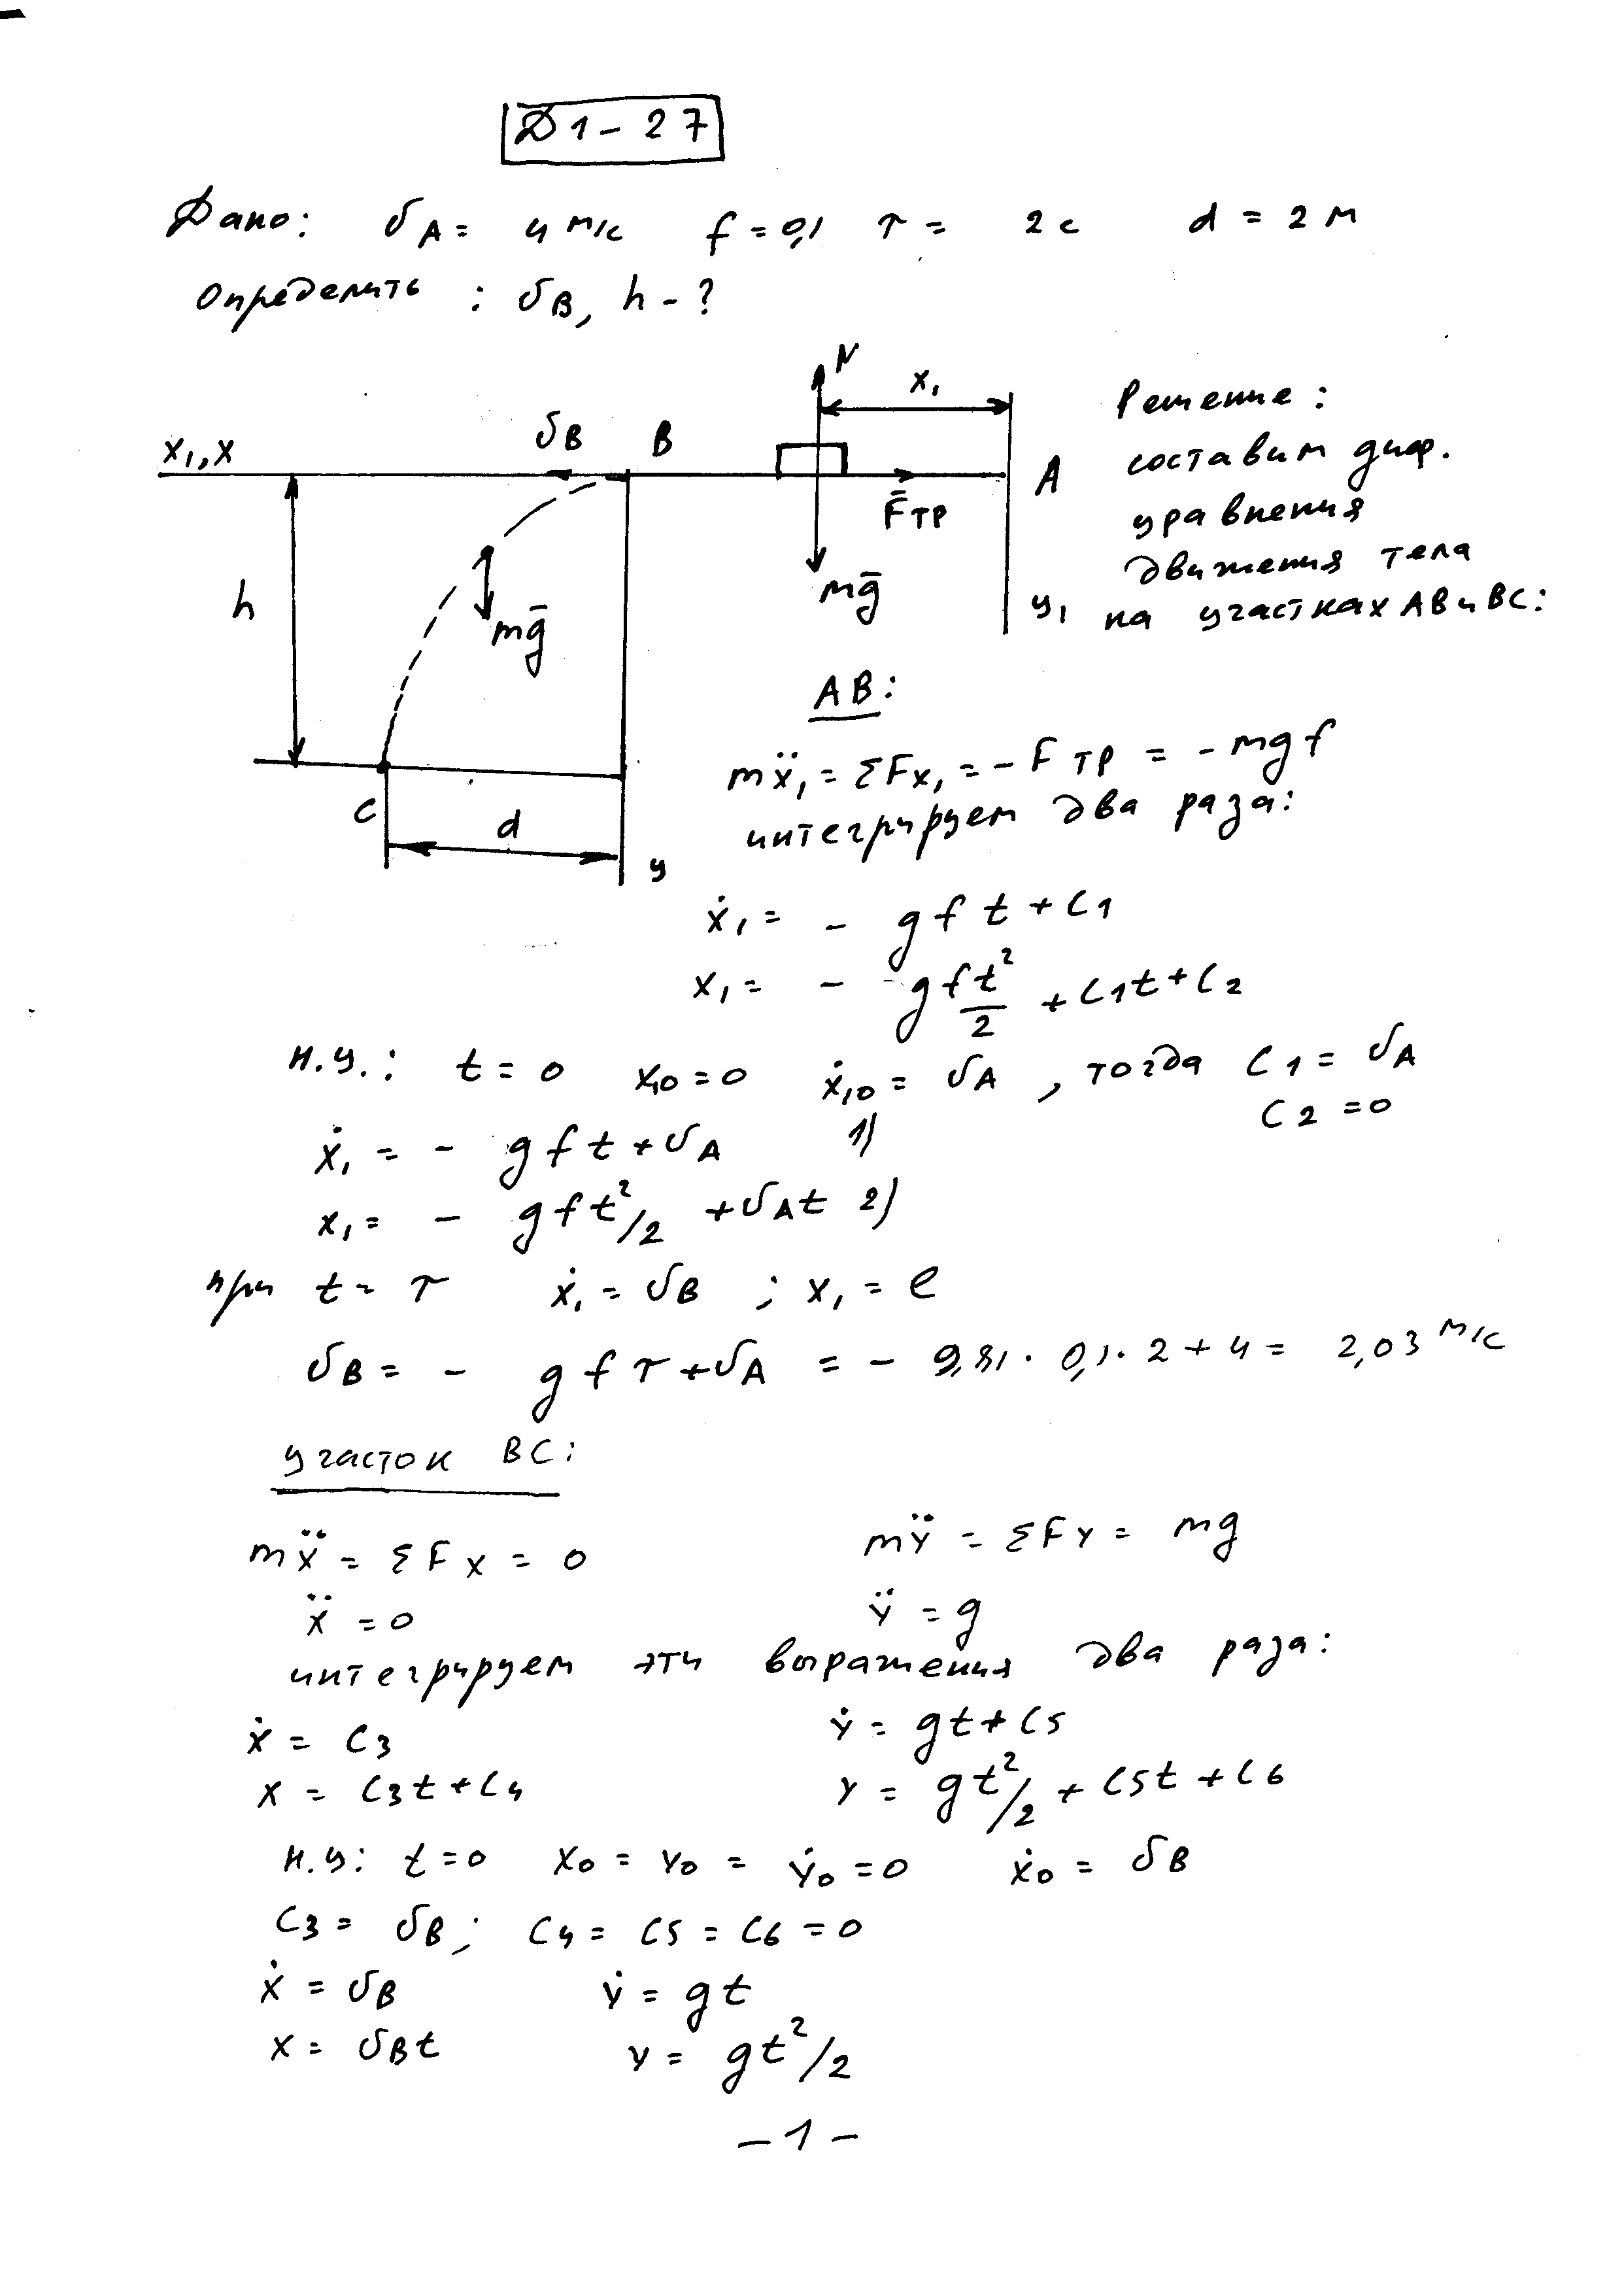 Д1-27
Дано: υA = 4 м/с f = 0,1 τ = 2 с d = 2 м
Определить: υB, h - ?
N
x₁
Решение:
x₁, x
υB
B
A
составим диф.
F̄тр
уравнения
движения тела
h
mḡ
mḡ
y₁
на участках AB и BC:
AB:
mẍ₁ = ΣFx₁ = - Fтр = - mgf
C
d
интегрируем два раза:
y
ẋ₁ = - gft + C1
x₁ = - gft²/2 + C1t + C2
н.у.: t = 0 x₁₀ = 0 ẋ₁₀ = υA, тогда C1 = υA
C2 = 0
ẋ₁ = - gft + υA 1)
x₁ = - gft²/2 + υAt 2)
при t = τ ẋ₁ = υB ; x₁ = l
υB = - gfτ + υA = - 9,81 · 0,1 · 2 + 4 = 2,03 м/с
участок BC:
mẍ = ΣFx = 0 mÿ = ΣFy = mg
ẍ = 0 ÿ = g
интегрируем эти выражения два раза:
ẋ = C3 ẏ = gt + C5
x = C3t + C4 y = gt²/2 + C5t + C6
н.у: t = 0 x₀ = y₀ = ẏ₀ = 0 ẋ₀ = υB
C3 = υB; C4 = C5 = C6 = 0
ẋ = υB ẏ = gt
x = υBt y = gt²/2
- 1 -